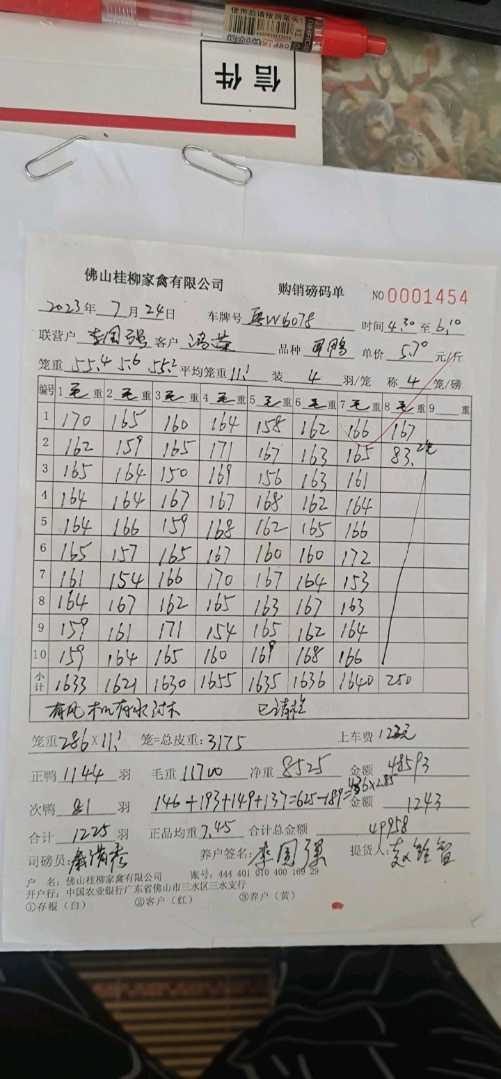 信件
佛山桂柳家禽有限公司 购销磅码单 NO 0001454
2023年 7月 24日 车牌号 W6078 时间 4.30 至 6.10
联营户 李国强 客户 鸿荣 品种 鸭 单价 5.70 元/斤
笼重 55.4 5.6 55.2 平均笼重 11.1 装 4 羽/笼 称 4 笼/磅
编号 1 毛 重 2 毛 重 3 毛 重 4 毛 重 5 毛 重 6 毛 重 7 毛 重 8 毛 重 9 重
1 170 165 160 164 158 162 166 167
2 162 159 165 171 167 163 165 83.
3 165 164 150 169 156 163 161
4 164 164 167 167 168 162 164
5 164 166 159 168 162 165 166
6 165 157 165 167 160 160 172
7 161 154 166 170 167 164 153
8 164 167 162 165 163 167 163
9 159 161 171 154 165 162 164
10 159 164 165 160 169 168 166
小计 1633 1621 1630 1655 1635 1636 1640 250
笼重 286×11.1 笼=总皮重: 3175 上车费
正鸭 1144 羽 毛重 11700 净重 8525 金额 48593
次鸭 81 羽 146+193+149+137=625-189=436×2.85 金额 1243
合计 1225 羽 正品均重 7.45 合计总金额 49958
司磅员: 养户签名: 李国强 提货人:
户 名: 佛山桂柳家禽有限公司 账号: 444 401 010 400 169 29
开户行: 中国农业银行广东省佛山市三水区三水支行
①存根(白) ②客户(红) ③养户(黄)